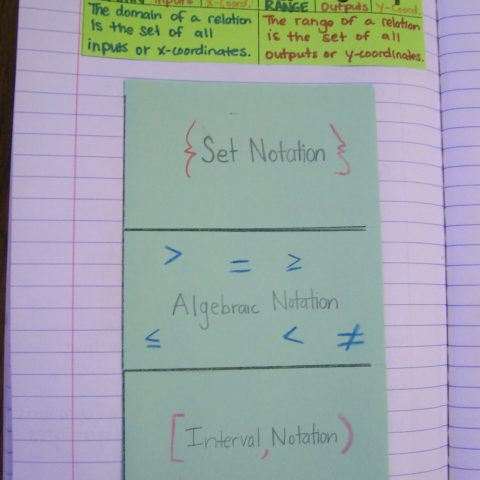 Inputs X-Coord.
The domain of a relation
is the set of all
inputs or x-coordinates.
RANGE Outputs Y-Coord.
The range of a relation
is the set of all
outputs or y-coordinates.
{Set Notation}
> = ≥
Algebraic Notation
≤ < ≠
[Interval, Notation)